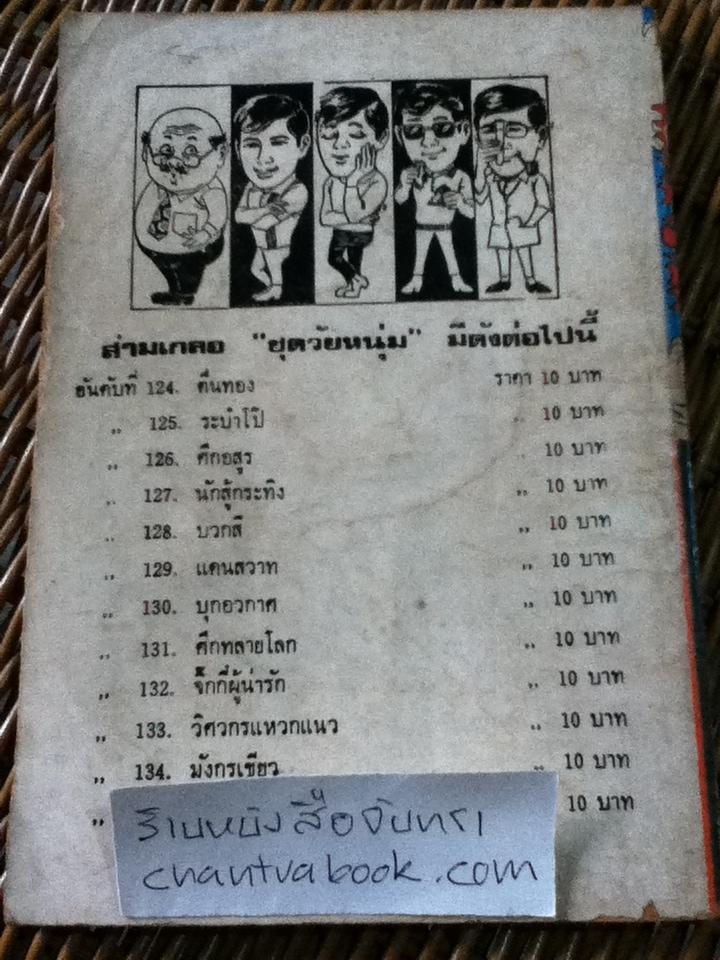 สามเกลอ "ชุดวัยหนุ่ม" มีดังต่อไปนี้
อันดับที่ 124. คืนทอง ราคา 10 บาท
„ 125. ระบำโป๊ „ 10 บาท
„ 126. ศึกอสูร „ 10 บาท
„ 127. นักสู้กระทิง „ 10 บาท
„ 128. บวกสี่ „ 10 บาท
„ 129. แดนสวาท „ 10 บาท
„ 130. บุกอวกาศ „ 10 บาท
„ 131. ศึกทลายโลก „ 10 บาท
„ 132. จิ๊กกี๋ผู้น่ารัก „ 10 บาท
„ 133. วิศวกรแหวกแนว „ 10 บาท
„ 134. มังกรเขียว „ 10 บาท
„ 10 บาท
ร้านหนังสือจันทรา
chantrabook.com